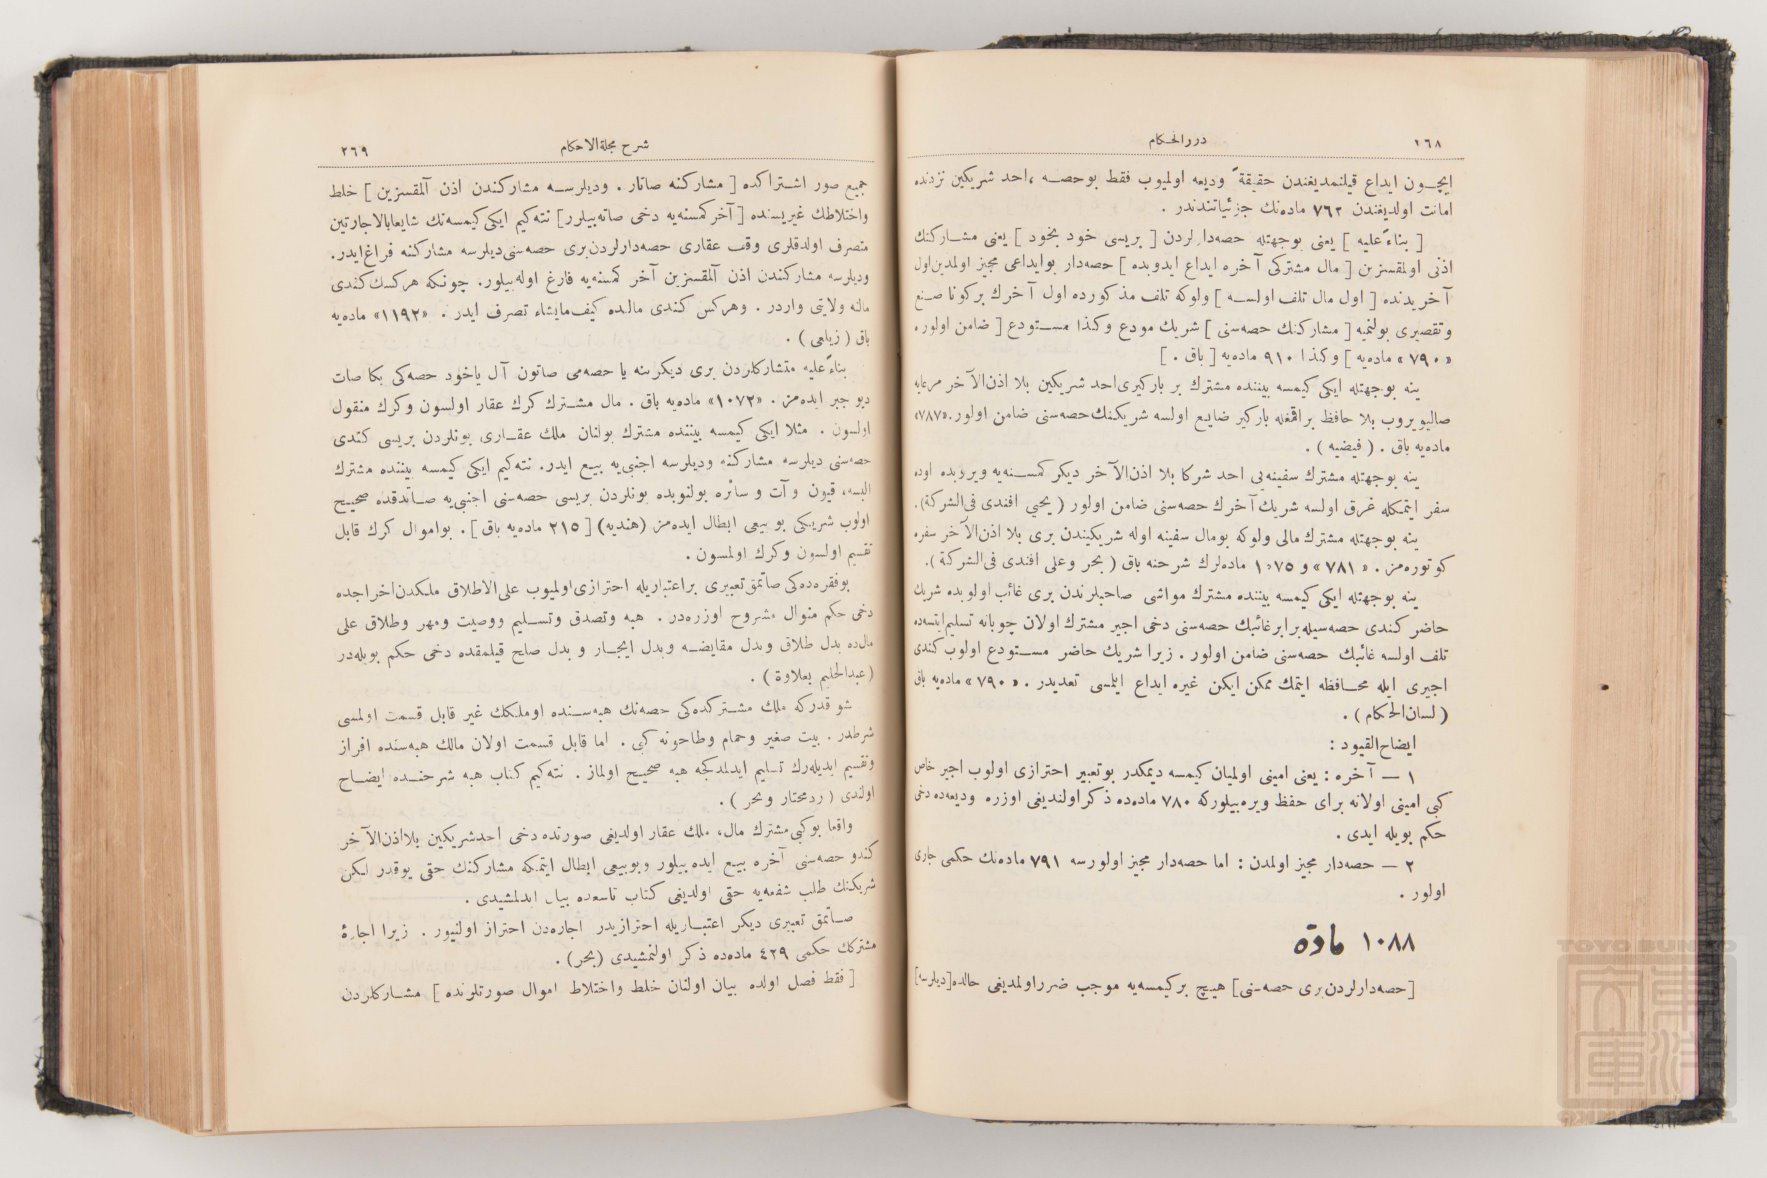 ٢٦٨
دررالحكام
ايچــون ايداع قيلنمديغندن حقيقةً وديعه اولميوب فقط بوحصــه ،احد شريكين نزدنده
امانت اولديغندن ٧٦٢ مادەنك جزئياتندندر .
[ بناءً عليه ] يعنى بوجهتله حصەدارلردن [ بريسى خود بخود ] يعنى مشــاركنك
اذنى اولمقسزين [ مال مشتركى آخره ايداع ايدوبده ] حصەدار بوايداعى مجيز اولمدين اول
آخر يدنده [ اول مال تلف اولســه ] ولوكه تلف مذكورده اول آخرك بركونا صنع
وتقصيرى بولنميه [ مشاركنك حصەسنى ] شريك مودع وكذا مســتودع [ ضامن اولور،
« ٧٩٠ » مادەيه ] وكذا ٩١٠ مادەيه [ باق . ]
ينه بوجهتله ايكى كيمسه بيننده مشترك بر باركيرى احد شريكين بلا اذن الآخر مرعايه
صاليويروب بلا حافظ براقمغله باركير ضايع اولسه شريكنك حصەسنى ضامن اولور.«٧٨٧»
مادەيه باق . ( فيضيه ) .
ينه بوجهتله مشترك سفينەيى احد شركا بلا اذن الآخر ديكر كمســنەيه ويروبده اوده
سفر ايتمكله غرق اولسه شريك آخرك حصەسنى ضامن اولور ( يحيى افندى فى الشركة ).
ينه بوجهتله مشترك مالى ولوكه بومال سفينه اوله شريكيندن برى بلا اذن الآخر سفره
كوتورەمز . « ٧٨١ » و ١٠٧٥ مادەلرك شرحنه باق ( بحر وعلى افندى فى الشركة ).
ينه بوجهتله ايكى كيمسه بيننده مشترك مواشى صاحبلرندن برى غائب اولوبده شريك
حاضر كندى حصەسيله برابر غائبك حصەسنى دخى اجير مشترك اولان چوبانه تسليم ايتسەده
تلف اولسه غائبك حصەسنى ضامن اولور . زيرا شريك حاضر مســتودع اولوب كندى
اجيرى ايله محــافظه ايتمك ممكن ايكن غيره ايداع ايلمسى تعديدر . « ٧٩٠ » مادەيه باق
( لسان الحكام ) .
ايضاح القيود :
١ — آخره : يعنى امينى اولميان كيمسه ديمكدر بوتعبير احترازى اولوب اجير خاص
كبى امينى اولانه براى حفظ ويرەبيلوركه ٧٨٠ مادەده ذكر اولنديغى اوزره وديعەده دخى
حكم بويله ايدى .
٢ — حصەدار مجيز اولمدن : اما حصەدار مجيز اولورسه ٧٩١ مادەنك حكمى جارى
اولور .
١٠٨٨ مادّه
[ حصەدارلردن برى حصەسنى ] هيچ بر كيمسەيه موجب ضرر اولمديغى حالده [ ديلرسه ]
شرح مجلة الاحكام
٢٦٩
جميع صور اشــتراكده [ مشاركنه صاتار . وديلرســه مشاركندن اذن آلمقسزين ] خلط
واختلاطك غيريسنده [ آخر كمسنەيه دخى صاتەبيلور ] نتەكيم ايكى كيمسەنك شايعا بالاجارتين
متصرف اولدقلرى وقف عقارى حصەدارلردن برى حصەسنى ديلرسه مشاركنه فراغ ايدر.
وديلرسه مشاركندن اذن آلمقسزين آخر كمسنەيه فارغ اولەبيلور. چونكه هركسك كندى
مالنه ولايتى واردر . وهركس كندى مالنده كيف مايشاء تصرف ايدر . «١١٩٢» مادەيه
باق ( زيلعى ) .
بناءً عليه متشاركلردن برى ديكرينه يا حصەمى صاتون آل ياخود حصەكى بكا صات
ديو جبر ايدەمز . «١٠٧٢» مادەيه باق . مال مشــترك كرك عقار اولسون وكرك منقول
اولسون . مثلا ايكى كيمسه بيننده مشترك بولنان ملك عقــارى بونلردن بريسى كندى
حصەسنى ديلرسه مشاركنه وديلرسه اجنبىيه بيع ايدر. نتەكيم ايكى كيمسه بيننده مشترك
البسه، قيون و آت و سائره بولنوبده بونلردن بريسى حصەسنى اجنبىيه صــاتدقده صحيح
اولوب شريكى بو بيعى ابطال ايدەمز (هنديه) [ ٢١٥ مادەيه باق ]. بواموال كرك قابل
تقسيم اولسون وكرك اولمسون .
بوفقرەدەكى صاتمق تعبيرى بر اعتباريله احترازى اولميوب على الاطلاق ملكدن اخراجده
دخى حكم منوال مشروح اوزرەدر . هبه وتصدق وتســليم ووصيت ومهر وطلاق على
مالده بدل طلاق وبدل مقايضــه وبدل ايجــار و بدل صلح قيلمقده دخى حكم بويلەدر
( عبدالحليم بعلاوة ) .
شو قدركه ملك مشــتركدەكى حصەنك هبەســنده اوملكك غير قابل قسمت اولمسى
شرطدر . بيت صغير وحمام وطاحونه كبى . اما قابل قسمت اولان مالك هبەسنده افراز
وتقسيم ايديلەرك تسليم ايدلمدكجه هبه صحيح اولماز . نتەكيم كتاب هبه شرحنــده ايضــاح
اولندى ( ردمحتار وبحر ) .
واقعا بوكبى مشترك مال، ملك عقار اولديغى صورتده دخى احد شريكين بلا اذن الآخر
كندو حصەسنى آخره بيع ايدەبيلور وبوبيعى ابطال ايتمكه مشاركنك حقى يوقدر ليكن
شريكنك طلب شفعەيه حقى اولديغى كتاب تاسعده بيان ايدلمشيدى .
صــاتمق تعبيرى ديكر اعتبــاريله احترازيدر اجارەدن احتراز اولنيور . زيرا اجارۀ
مشتركك حكمى ٤٢٩ مادەده ذكر اولنمشيدى (بحر) .
[ فقط فصل اولده بيان اولنان خلط واختلاط اموال صورتلرنده ] مشــاركلردن
TOYO BUNKO